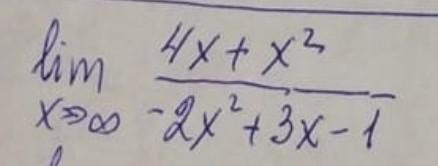 lim x→∞ (4x + x²) / (-2x² + 3x - 1)